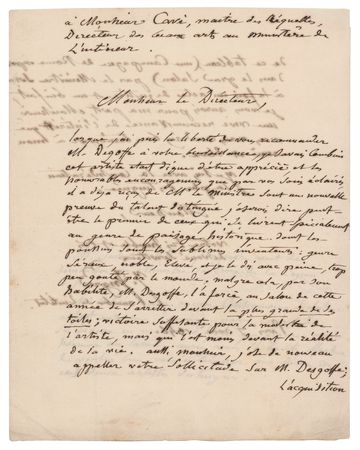 à Monsieur Cavé, maitre des Requêtes,
Directeur des beaux arts au ministère de
L'intérieur.
Monsieur le Directeur,
lorsque j'ai pris la liberté de vous recommander
M. Desgoffe à votre bienveillance, je savais combien
cet artiste etait digne d'être apprécié et les
honorables encouragemens que par vos soins éclairés
il a déja reçus de M. le ministre sont une nouvelle
preuve du talent distingué j'oserai dire peut
etre le premier de ceux qui se livrent spécialement
au genre de paisage historique. dont les
poussins sont les sublimes créateurs. genre
sérieux noble élevé et je le dis avec peine, trop
peu gouté par le monde. malgré cela, par son
habileté, M. Desgoffe, l'a forcé au Salon de cette
année de s'arrêter devant la plus grande de ses
toiles; victoire suffisante pour la modestie de
l'artiste, mais qui l'est moins devant la réalité
de la vie. aussi, monsieur, j'ose de nouveau
appeller votre sollicitude sur M. Desgoffe;
L'acquisition